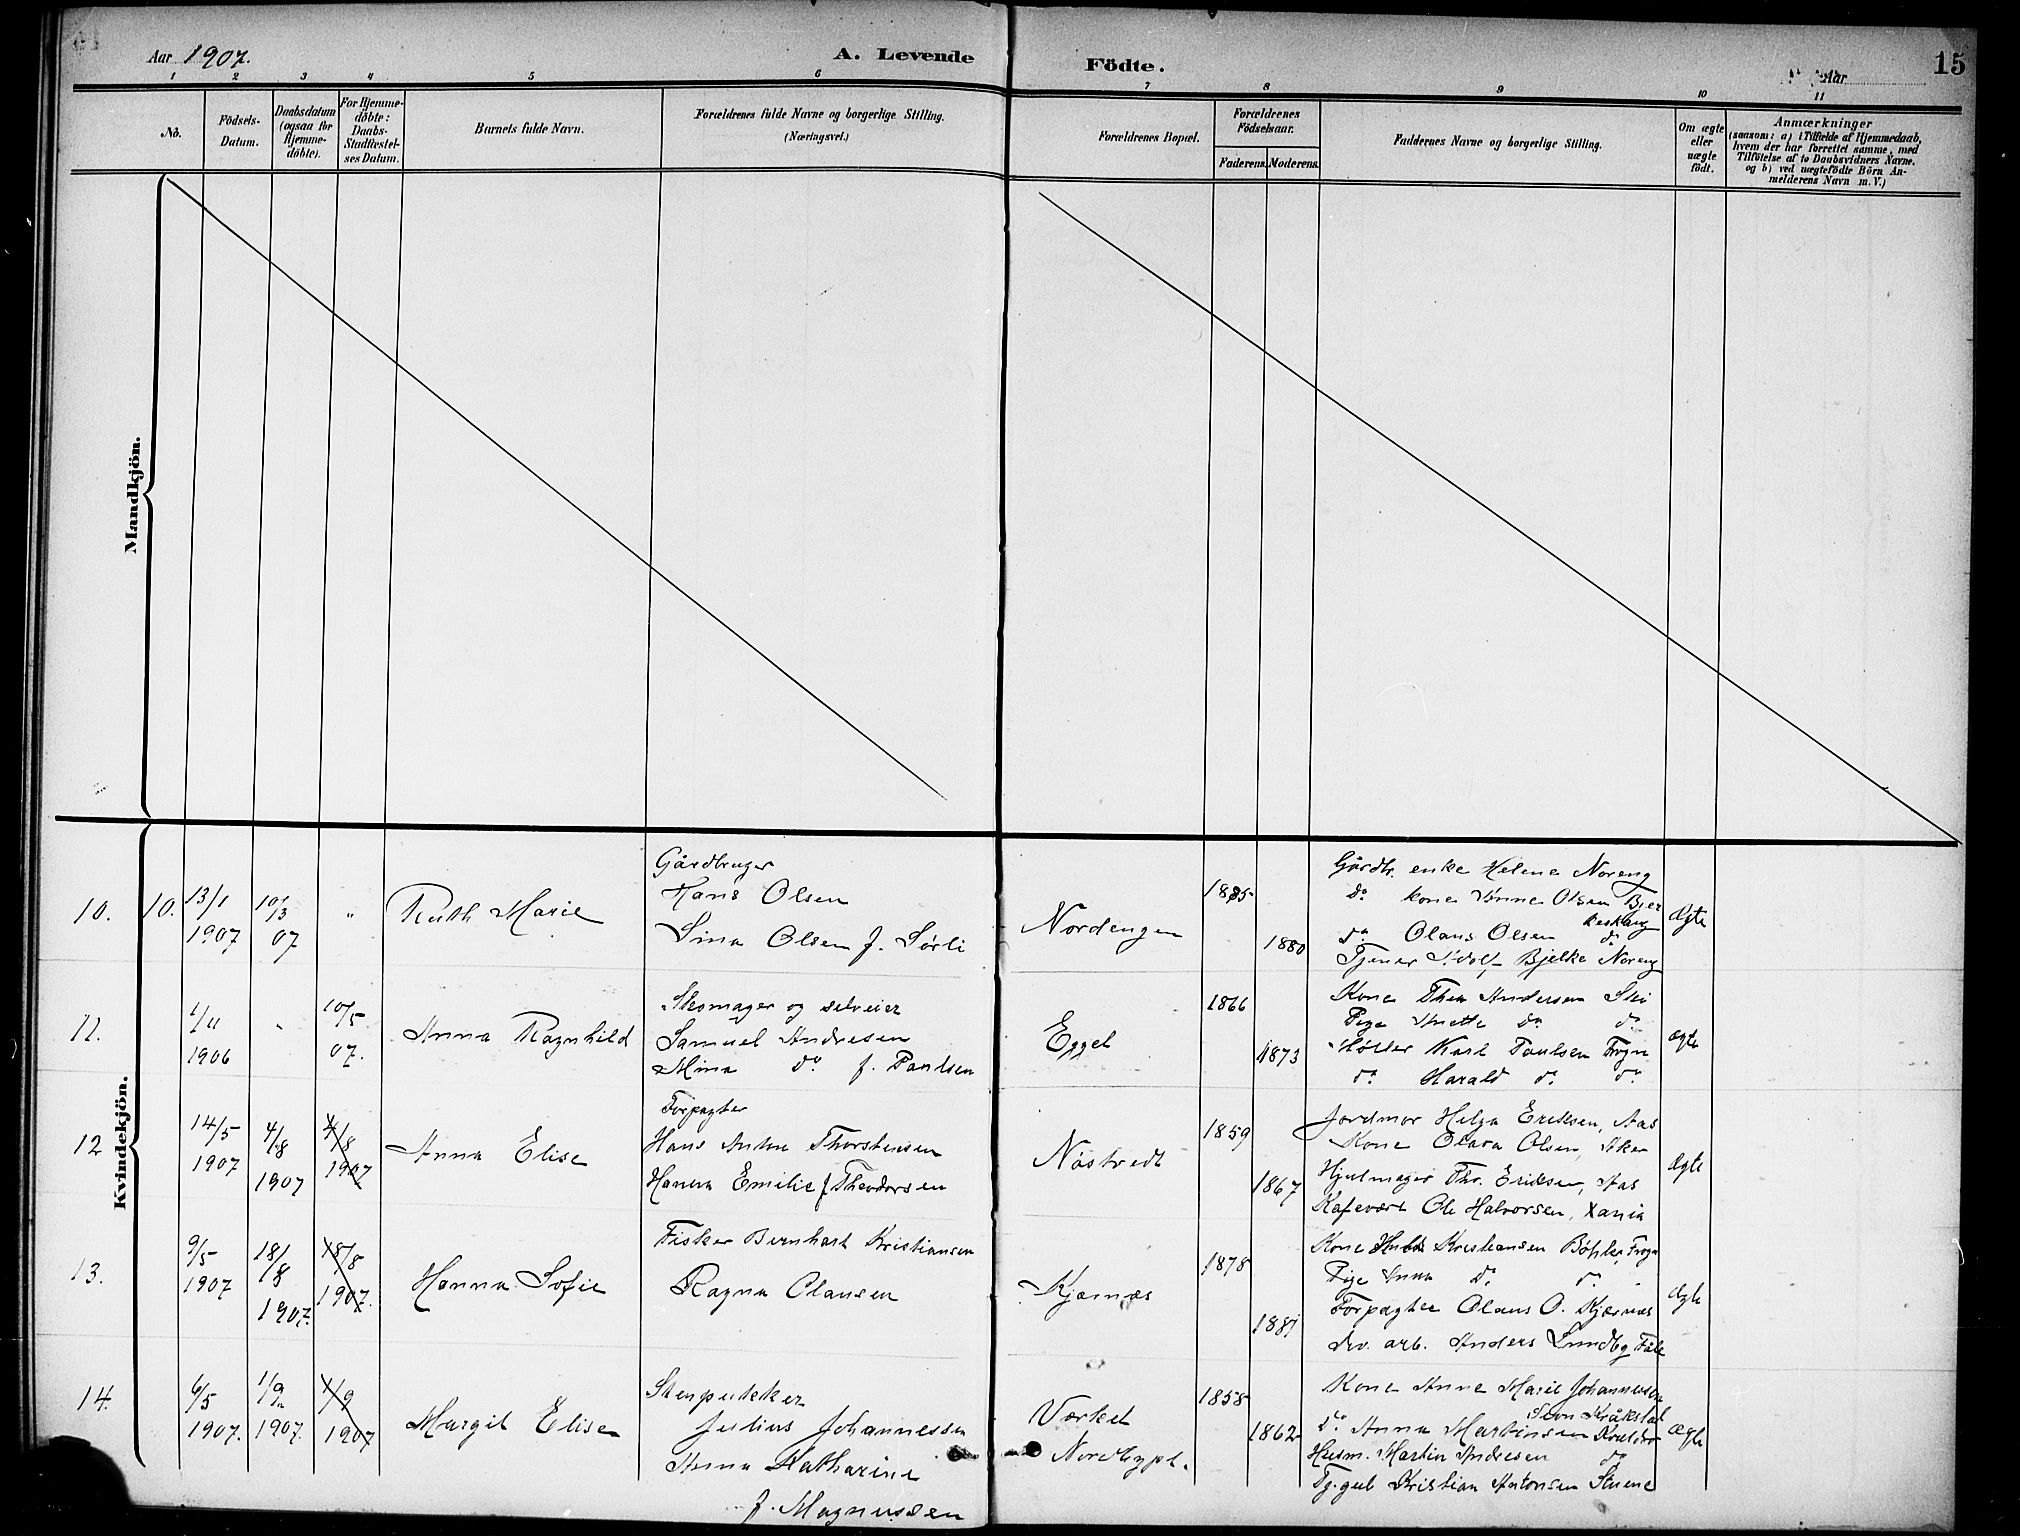 Aar 1907.
A. Levende
Födte.
Aar
15
1 2 3 4 5 6 7 8 9 10 11
No.
Födsels-
Datum.
Daabsdatum
(ogsaa for
Hjemme-
döbte).
For Hjemme-
döbte:
Daabs-
Stadfæstel-
ses Datum.
Barnets fulde Navn.
Forældrenes fulde Navne og borgerlige Stilling.
(Næringsvei.)
Forældrenes Bopæl.
Forældrenes
Födselsaar.
Faderens. Moderens.
Faddernes Navne og borgerlige Stilling.
Om ægte
eller
uægte
födt.
Anmærkninger
(saasom: a) i Tilfælde af Hjemmedaab,
hvem der har forrettet samme, med
Tilföielse af to Daabsvidners Navne,
og b) ved uægtefödte Börn An-
melderens Navn m. V.)
Mandkjön.
Kvindekjön.
10. 10. 13/1 1907
10/3 07
"
Ruth Marie
Gårdbruger
Hans Olsen
Sina Olsen f. Sørli
Nordengen
1885
1880
Gårdbr. enke Helene Noreng
do kone Anne Olsen Bjer
keskaug
do Olaus Olsen do
Tjener Adolf Bjelke Noreng
Ægte
11.
1/11 1906
"
10/5 07.
Anna Ragnhild
Skomager og selveier
Samuel Andresen
Mina do f. Paulsen
Egget
1866
1873
Kone Thea Andersen Ski
Pige Anette do do
Møller Karl Paulsen Frogn
do Harald do do
Ægte
12
14/5 1907
4/8 1907
4/8 1907
Anna Elise
Forpagter
Hans Anton Thorstensen
Hanna Emilie f Theodorsen
Nåstvedt
1859
1867
Jordmor Helga Eriksen, Aas
Kone Olava Olsen, Aker
Hjulmager Thr. Eriksen, Aas
Kafevært Ole Halvorsen, Xania
Ægte
13.
9/5 1907
18/8 1907.
18/8 1907.
Hanna Sofie
Fisker Bernhart Kristiansen
Ragna Clausen
Kjærnæs
1878
1881
Kone Hulda Kristiansen Böhler, Frogn
Pige Anna do do
Forpagter Olaus O. Kjærnæs
Div. arb. Anders Lundby Fåle
Ægte
14.
6/5 1907.
1/9 1907.
1/9 1907
Margit Elise
Stenpukker
Julius Johannessen
Anna Katharine
f. Magnussen
Værket
Nordbypl.
1858
1862
Kone Anne Marie Johannessen
Kråkstad
do Anna Martinsen
Husm. Martin Andresen do
Tj. gut Kristian Antonsen Stuene
Ægte